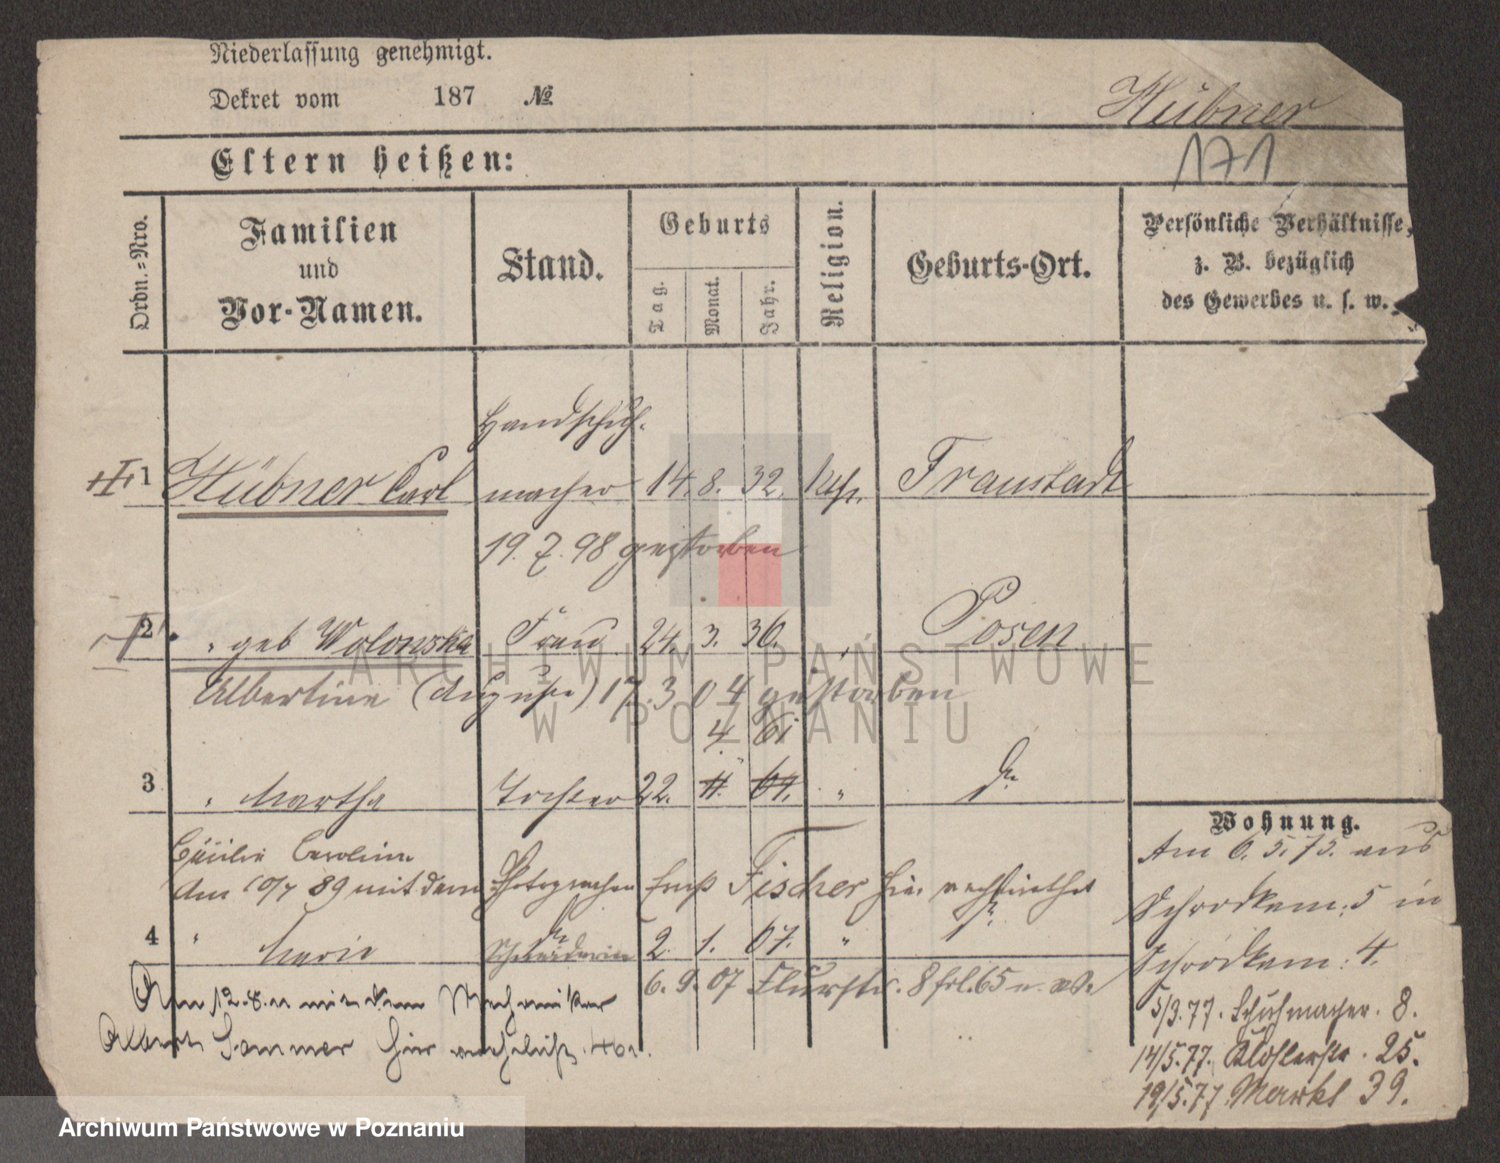 Niederlassung genehmigt.
Dekret vom 187 №
Hübner
171
Eltern heißen:
Ordn.=Nro.
Familien
und
Vor-Namen.
Stand.
Geburts
Tag.
Monat.
Jahr.
Religion.
Geburts-Ort.
Persönliche Verhältnisse,
z. B. bezüglich
des Gewerbes u. s. w.
Handschuh-
1 Hübner Carl macher 14. 8. 32. Kth. Fraustadt
19. 7. 98 gestorben
2 " geb Wolowska Frau 24. 3. 36. " Posen
Albertine (Auguste) 17. 3 04 gestorben
4. 61
3 " Martha Tochter 22. 11. 64. " do
Cäcilie Caroline
Am 10/7 89 mit dem Photographen Ernst Fischer hier verheirathet
4 " Marie do Schneiderin 2. 1. 67. " do
6. 9. 07 Flurstr. 8
Am 12.8. mit dem Mechaniker
Albert Sommer hier
Wohnung.
Am 6. 5. 73. aus
Schrodkam: 5 in
Schrodkam: 4.
5/3.77. Schuhmacher. 8.
14/5.77. Klosterstr. 25.
19/5.77 Markt 39.
ARCHIWUM PAŃSTWOWE
W POZNANIU
Archiwum Państwowe w Poznaniu